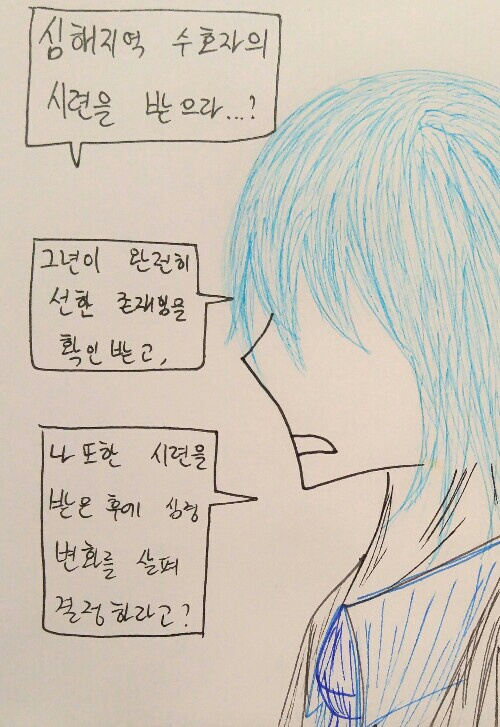 심해지역 수호자의
시련을 받으라...?
그년이 완전히
선한 존재임을
확인 받고,
나 또한 시련을
받은 후에 심경
변화를 살펴
결정하라고?